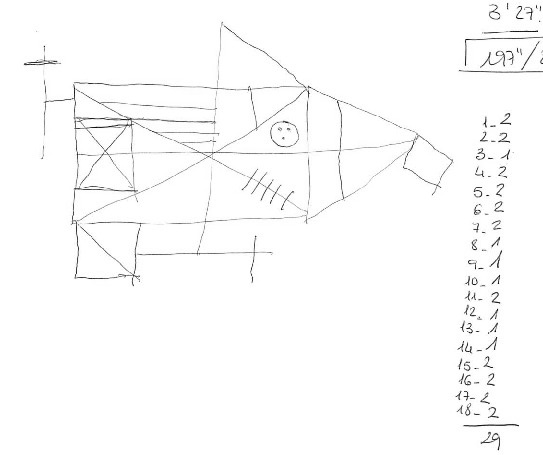 3' 27"
197"/
1-2
2-2
3-1
4-2
5-2
6-2
7-2
8-1
9-1
10-1
11-2
12-1
13-1
14-1
15-2
16-2
17-2
18-2
29